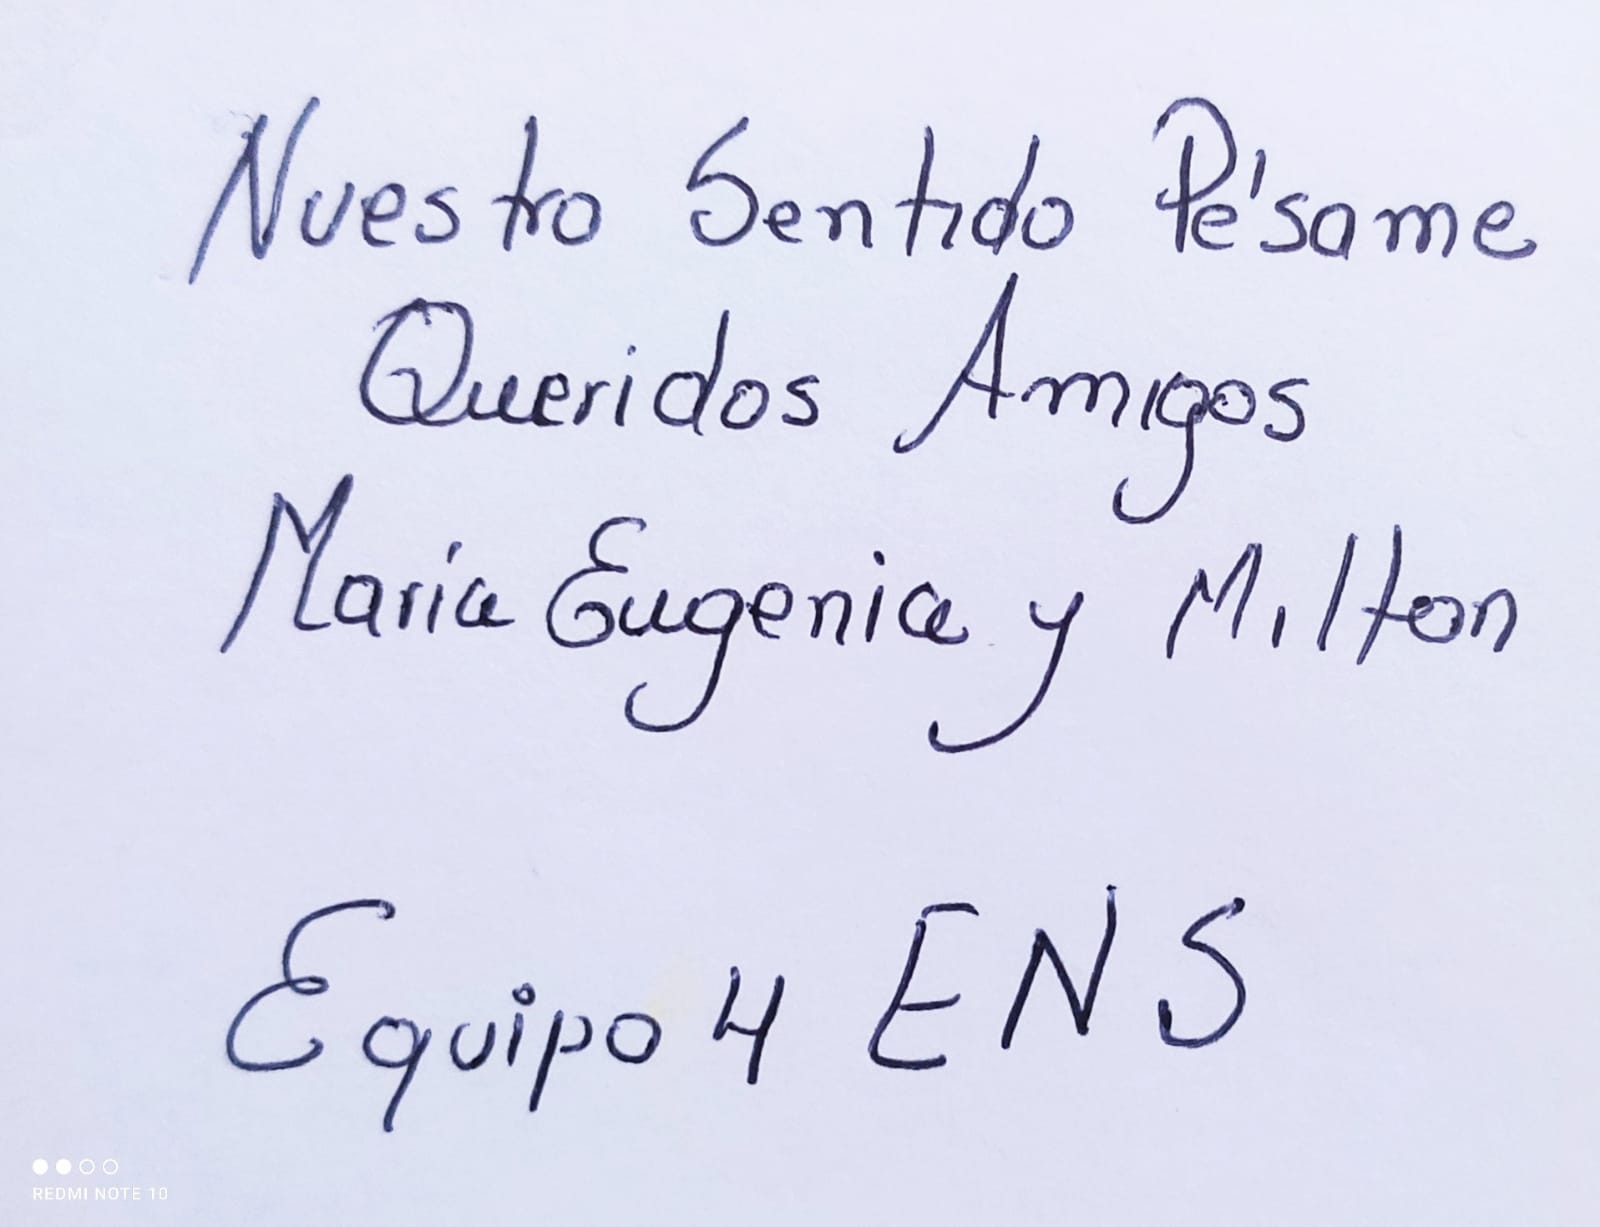 Nuestro Sentido Pésame
Queridos Amigos
María Eugenia y Milton
Equipo 4 ENS
REDMI NOTE 10